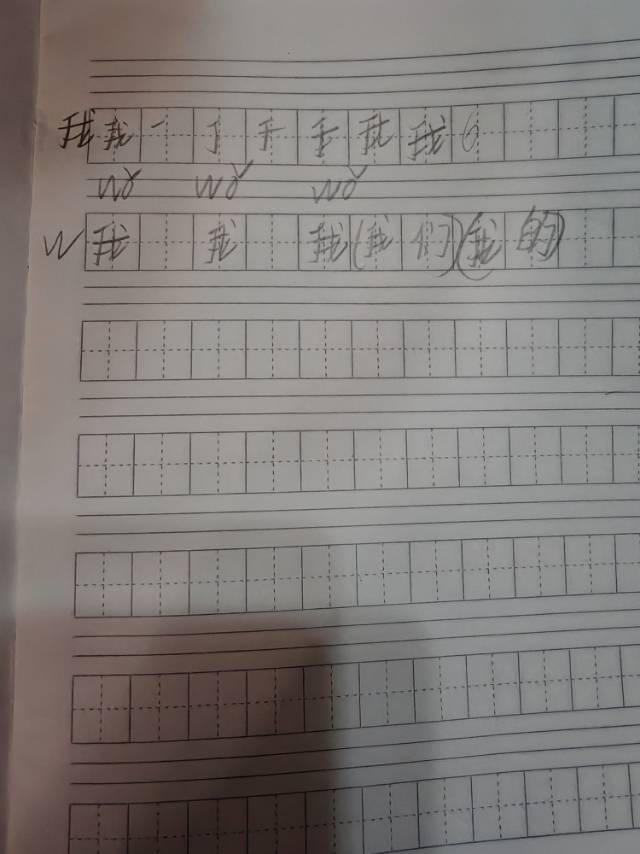 我 我 一 亅 于 手 我 我 6
wǒ wǒ wǒ
W 我 我 我 (我们) (我的)